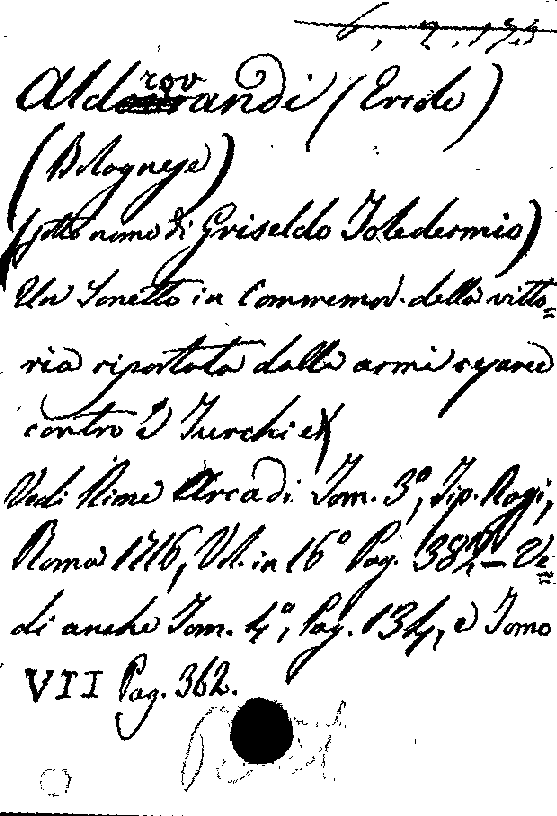 6, 2, 173
Aldrovrandi (Ercole)
(Bolognese)
(sotto nome di Griseldo Toledermio)
Un Sonetto in Commemor. della vitto=
ria riportata dalle armi cesaree
contro i Turchi etc
Vedi Rime Arcadi Tom. 3º, Tip. Rogi,
Roma 1716, Vol. in 16º Pag. 382 — Ve=
di anche Tom. 4º, Pag. 134, e Tomo
VII Pag. 362.